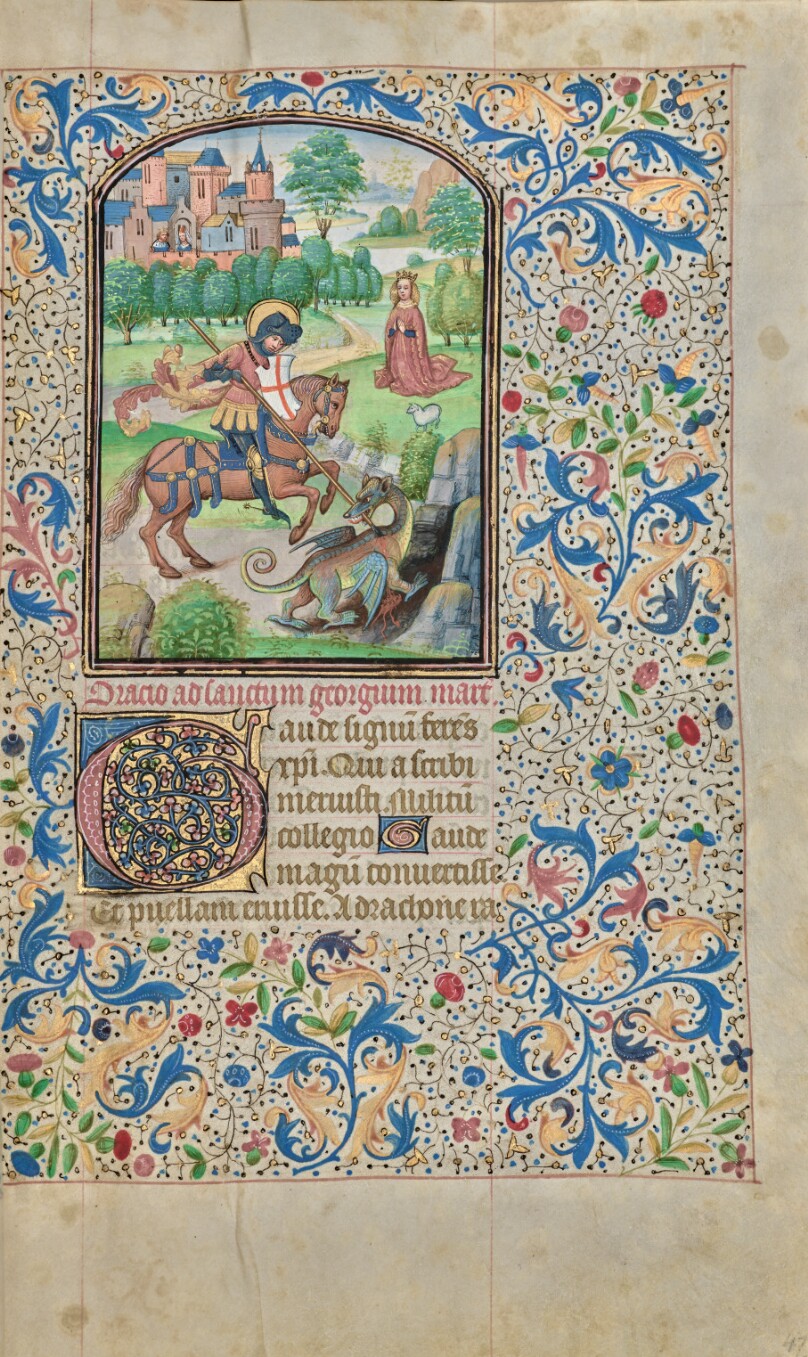 Oracio ad sanctum georgium mart̄.
Gaude signū feres
xp̄i. Qui ascribi
meruisti. Militū
collegio Gaude
magū convertisse
Et puellam eruisse. A drachone ra
47